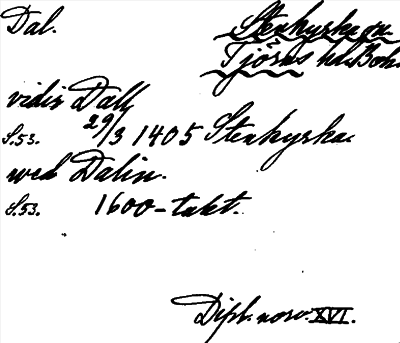 Dal.
Stenkyrka sn.
Tjörns hd. Boh.
vidir Dall
S.53. 29/3 1405 Stenkyrka.
wed Dalin.
S.53. 1600-talet.
Dipl. norv. XVI.